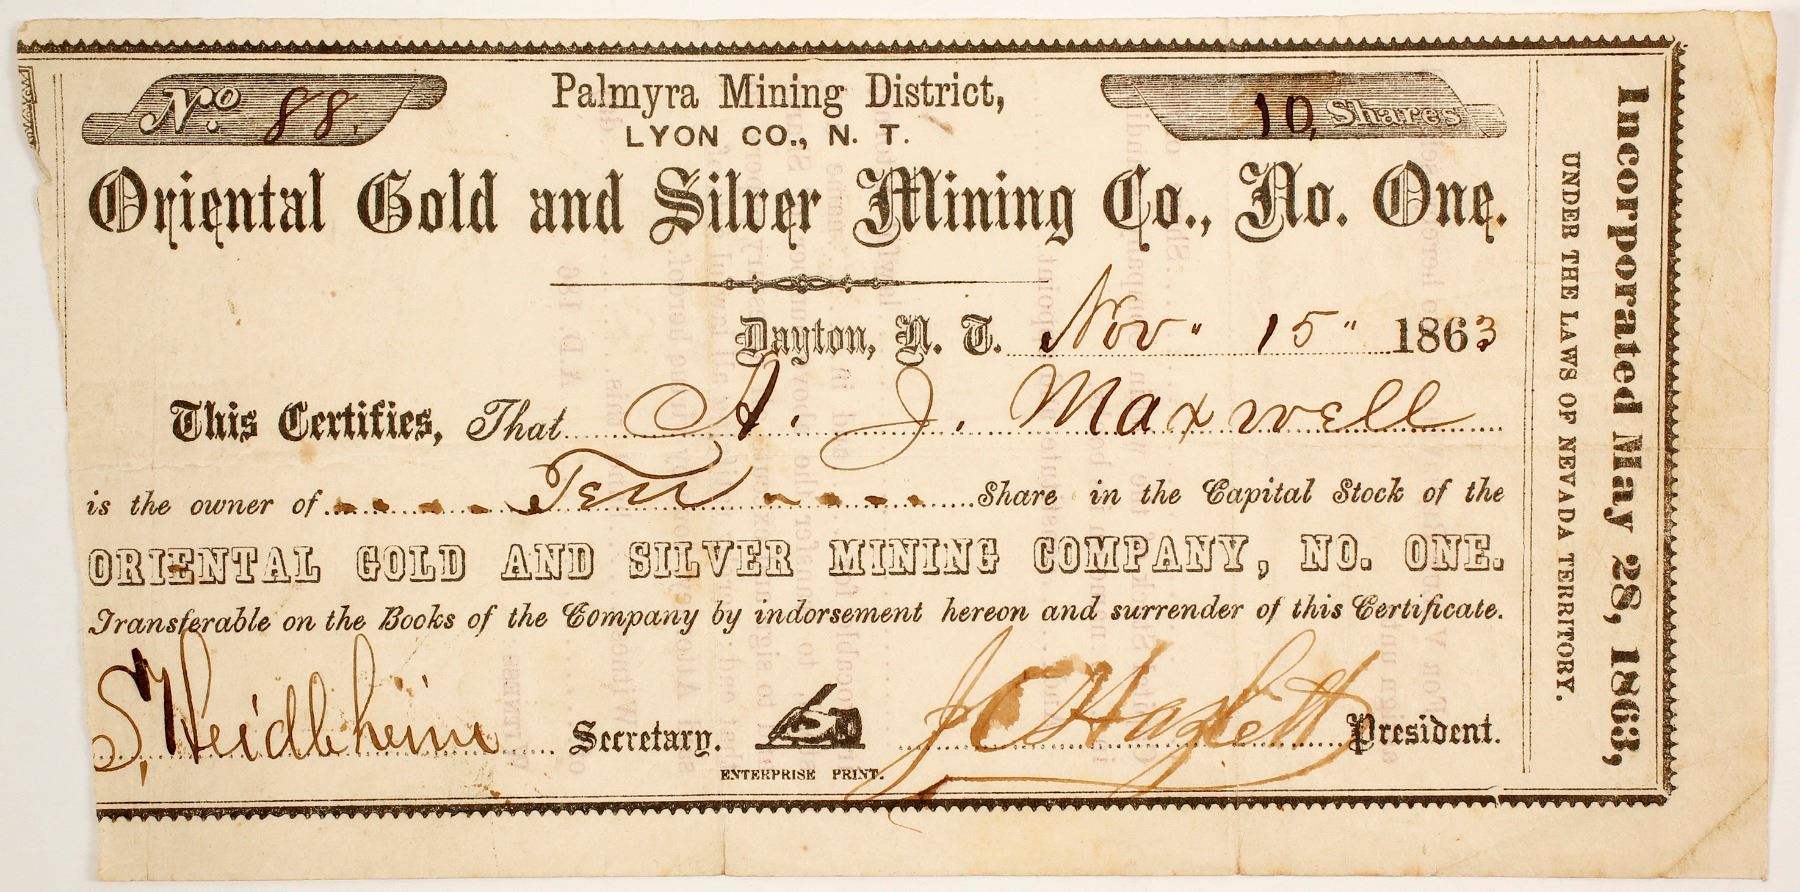 No. 88.
Palmyra Mining District,
LYON CO., N. T.
10, Shares
Oriental Gold and Silver Mining Co., No. One.
Dayton, N. T. Nov" 15" 1863
This Certifies, That A. J. Maxwell
is the owner of Ten Share in the Capital Stock of the
ORIENTAL GOLD AND SILVER MINING COMPANY, NO. ONE.
Transferable on the Books of the Company by indorsement hereon and surrender of this Certificate.
S, Heidleheim Secretary. J C Hazlett President.
ENTERPRISE PRINT.
Incorporated May 28, 1863,
UNDER THE LAWS OF NEVADA TERRITORY.